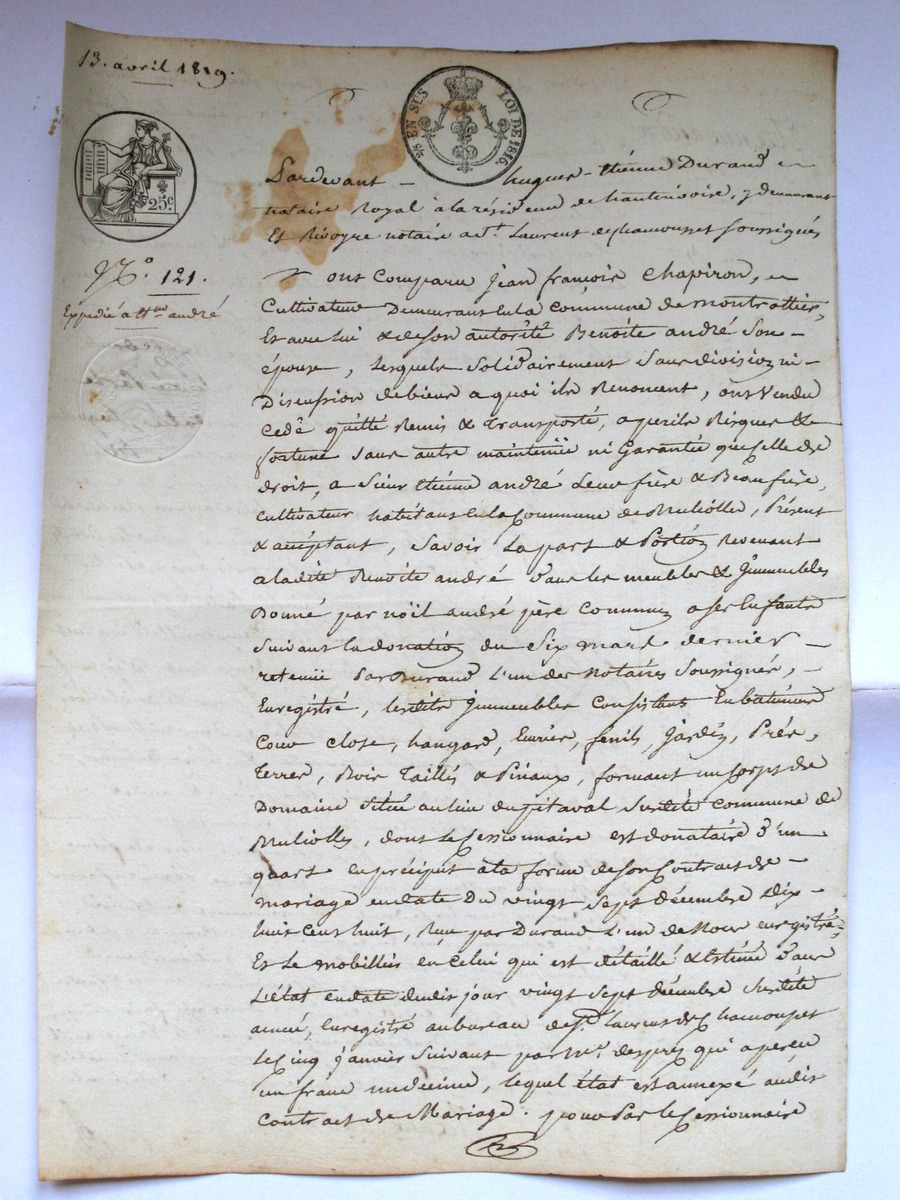 13. avril 1819.
EN SUS LOI DE 1816.
25c.
Pardevant hugues-étienne Durand
notaire Royal à la résidence de hauterivoire, y demeurant
Et Rivoyre notaire a St. Laurent de chamousset soussignés
N.o 121.
Expédié à
andré
ont Comparu jean françois Chapiron,
Cultivateur Demeurant en la commune de montrottier,
Et avec lui & de son autorité Benoite andré Son
épouse, lesquels Solidairement Sans division ni
Discussion de bien a quoi ils Renoncent, ont Vendu
Cedé quitté Remis & transporté, a perils Risques &
fortune Sans autre maintenüe ni Garantie que Celle de
droit, a Sieur étienne andré Leur frère & Beaufrère,
Cultivateur habitant en la Commune de , Présent
& acceptant, Savoir La part & Portion Revenant
a ladite Benoite andré dans les meubles & Immeubles
Donné par noël andré père Commun a ses Enfants
Suivant la donation du Six mars dernier
retenüe Par Durand L'un des Notaires Soussignés,
Enregistré, lesdits Immeubles Consistent En batiments
Cour close, hangard, Ecurie, fenils, Jardin, Prés,
Terres, Bois Taillis & Pinaux, formant un Corps de
Domaine Situé au lieu du pitaval Susdite commune de
, dont le Cessionnaire est donataire d'un
quart en préciput à la forme de Son Contract de
mariage en date Du vingt Sept décembre Dix
huit Cent huit, Reçu par Durand L'un de Nous enregistré,
Et le mobillier en Celui qui est détaillé & Estimé dans
L'état en date dudit jour vingt Sept décembre Susdite
année, Enregistré au bureau de St. Laurent de Chamousset
le Cinq janvier Suivant par Mr. desprès qui a perçu
un franc , lequel état est annexé audit
Contract de Mariage. pour Par le Cessionnaire